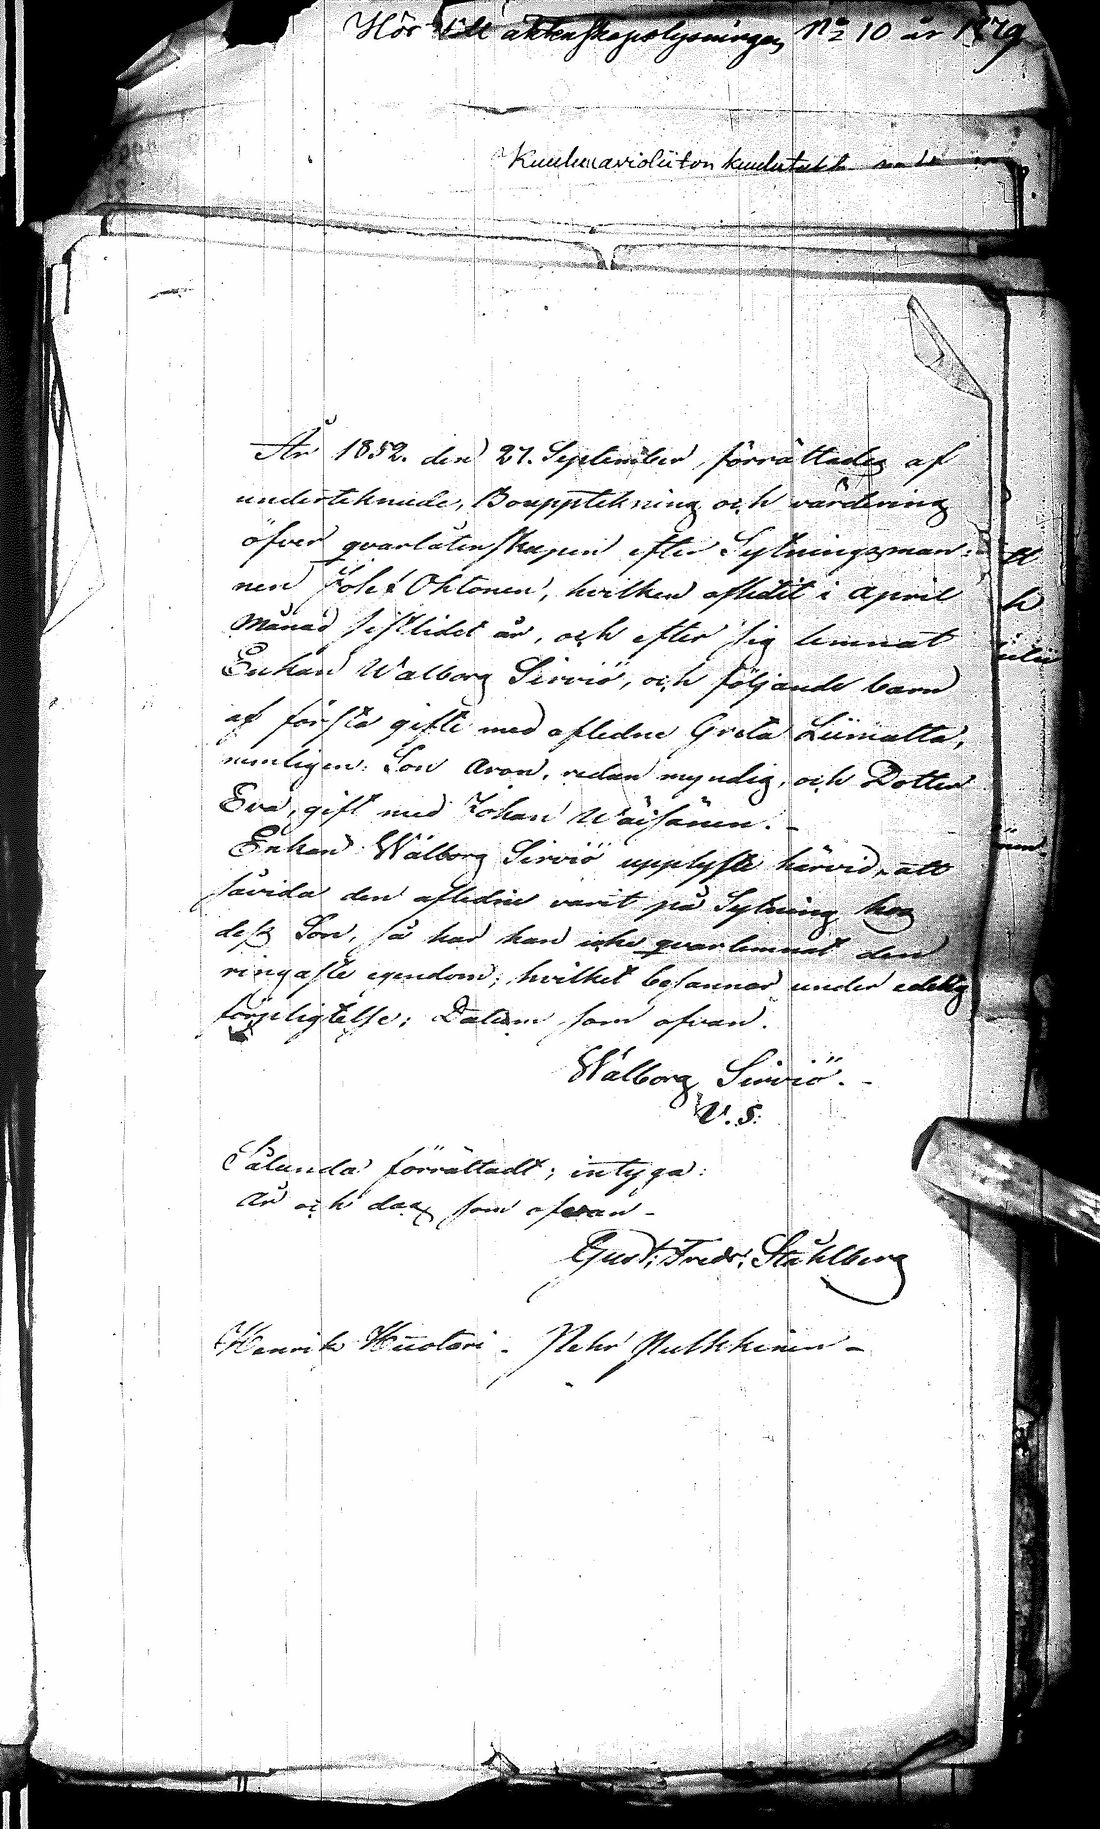 Hör till äktenskapslysningen No 10 år 1879
Kuuluu avioliiton kuulutukseen
År 1852. den 27. September, förrättades af
undertecknade, Bouppteckning och värdering
öfver qvarlåtenskapen efter Sytningsman-
nen Joh: Ohtonen, hvilken aflidit i April
Månad sistlidet år, och efter sig lemnat
Enkan Walborg Sirviö, och följande barn
af första gifte med afledne Greta Liimatta,
nemligen: Son Aron, redan myndig, och Dotter
Eva, gift med Johan Wäisänen. -
Enkan Walborg Sirviö upplyste härvid, att
såvida den afledne varit på Sytning hos
dess Son, så har han icke qvarlemnat den
ringaste egendom, hvilket besannas under edelig
förpligtelse; Datum som ofvan.
Walborg Sirviö. -
V. S:
Sålunda förrättadt; intyga:
År och dag som ofvan -
Gust: Fredr: Ståhlberg
Henrik Huotari - Petter Pulkkinen -